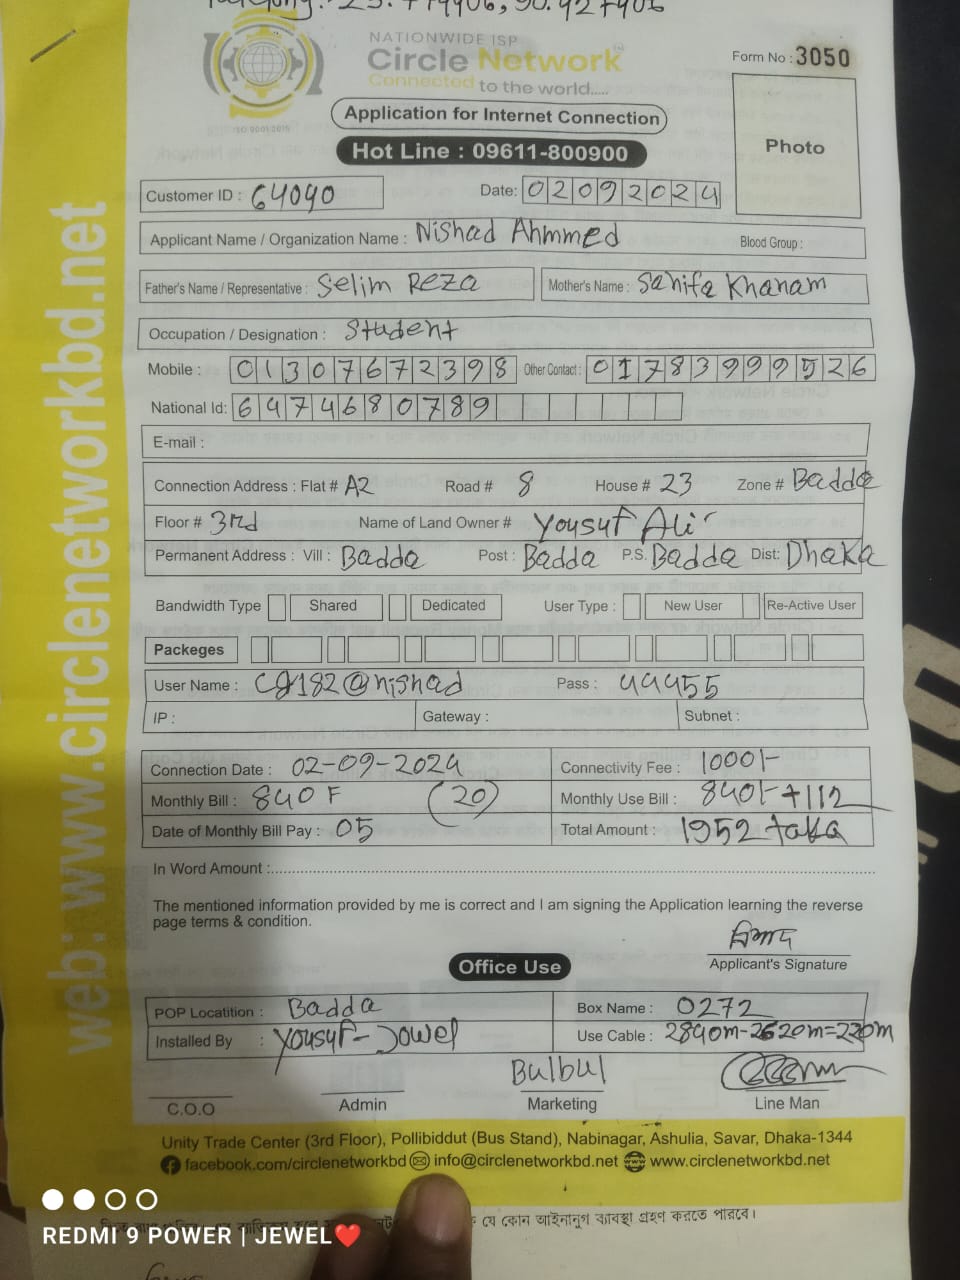 NATIONWIDE ISP
Circle Network™
Connected to the world.....
ISO 9001:2015
Form No : 3050
Application for Internet Connection
Photo
Hot Line : 09611-800900
Customer ID : 64090 Date: 02092024
Applicant Name / Organization Name : Nishad Ahmmed Blood Group :
Father's Name / Representative : Selim Reza Mother's Name : Sahifa Khanam
Occupation / Designation : Student
Mobile : 01307672398 Other Contact : 01783999526
National Id: 6474680789
E-mail :
Connection Address : Flat # A2 Road # 8 House # 23 Zone # Badda
Floor # 3rd Name of Land Owner # Yousuf Ali
Permanent Address : Vill : Badda Post : Badda P.S. Badda Dist: Dhaka
Bandwidth Type Shared Dedicated User Type : New User Re-Active User
Packeges
User Name : c9182@nishad Pass : 44455
IP : Gateway : Subnet :
Connection Date : 02-09-2024 Connectivity Fee : 1000/-
Monthly Bill : 840 F (20) Monthly Use Bill : 840/-+112
Date of Monthly Bill Pay : 05 Total Amount : 1952 taka
In Word Amount :
The mentioned information provided by me is correct and I am signing the Application learning the reverse
page terms & condition.
নিশাদ
Applicant's Signature
Office Use
POP Locatition : Badda Box Name : 0272
Installed By : Yousuf-Jowel Use Cable : 2840m-2620m=220m
Bulbul
C.O.O Admin Marketing Line Man
Unity Trade Center (3rd Floor), Pollibiddut (Bus Stand), Nabinagar, Ashulia, Savar, Dhaka-1344
facebook.com/circlenetworkbd info@circlenetworkbd.net www.circlenetworkbd.net
web: www.circlenetworkbd.net
যে কোন আইনানুগ ব্যবস্থা গ্রহণ করতে পারবে।
REDMI 9 POWER | JEWEL❤️